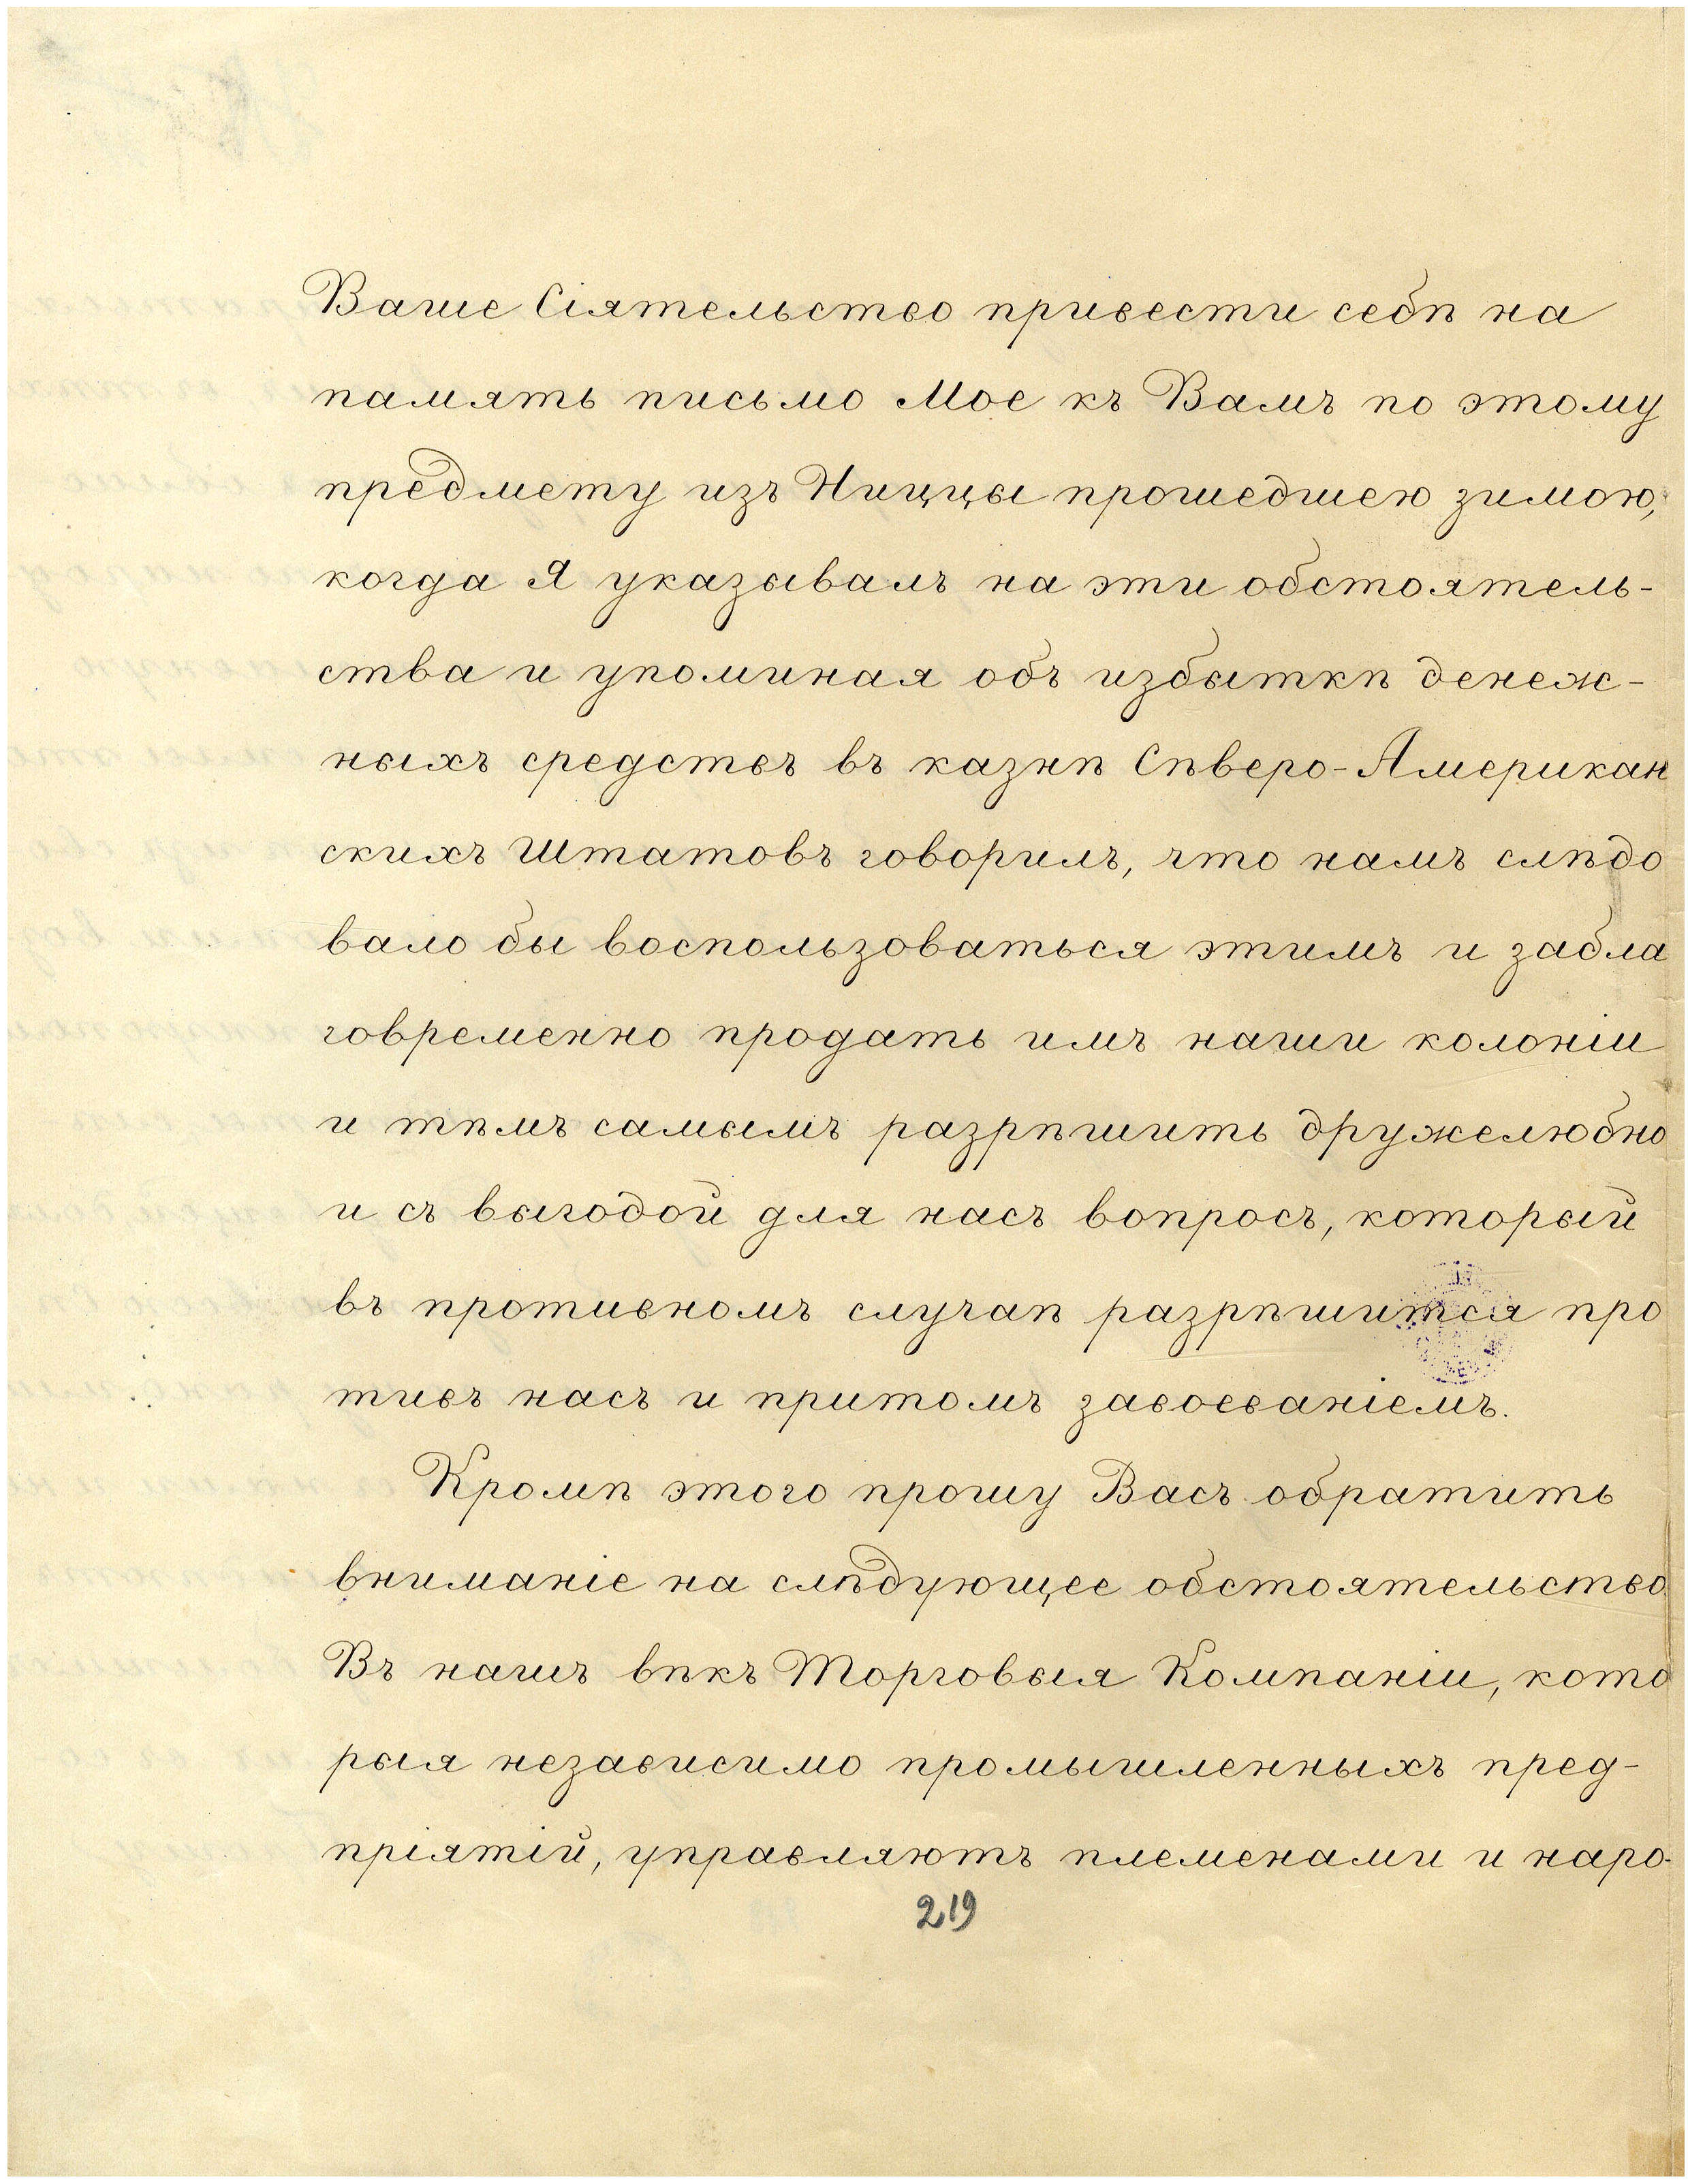 Ваше Сіятельство привести себѣ на
память письмо Мое къ Вамъ по этому
предмету изъ Ниццы прошедшею зимою,
когда Я указывалъ на эти обстоятель-
ства и упоминая объ избыткѣ денеж-
ныхъ средствъ въ казнѣ Сѣверо-Американ
скихъ Штатовъ говорилъ, что намъ слѣдо
вало бы воспользоваться этимъ и забла
говременно продать имъ наши колоніи
и тѣмъ самымъ разрѣшить дружелюбно
и съ выгодой для насъ вопросъ, который
въ противномъ случаѣ разрѣшится про
тивъ насъ и притомъ завоеваніемъ.
Кромѣ этого прошу Васъ обратить
вниманіе на слѣдующее обстоятельство
Въ нашъ вѣкъ Торговыя Компаніи, кото
рыя независимо промышленныхъ пред-
пріятій, управляютъ племенами и наро-
219